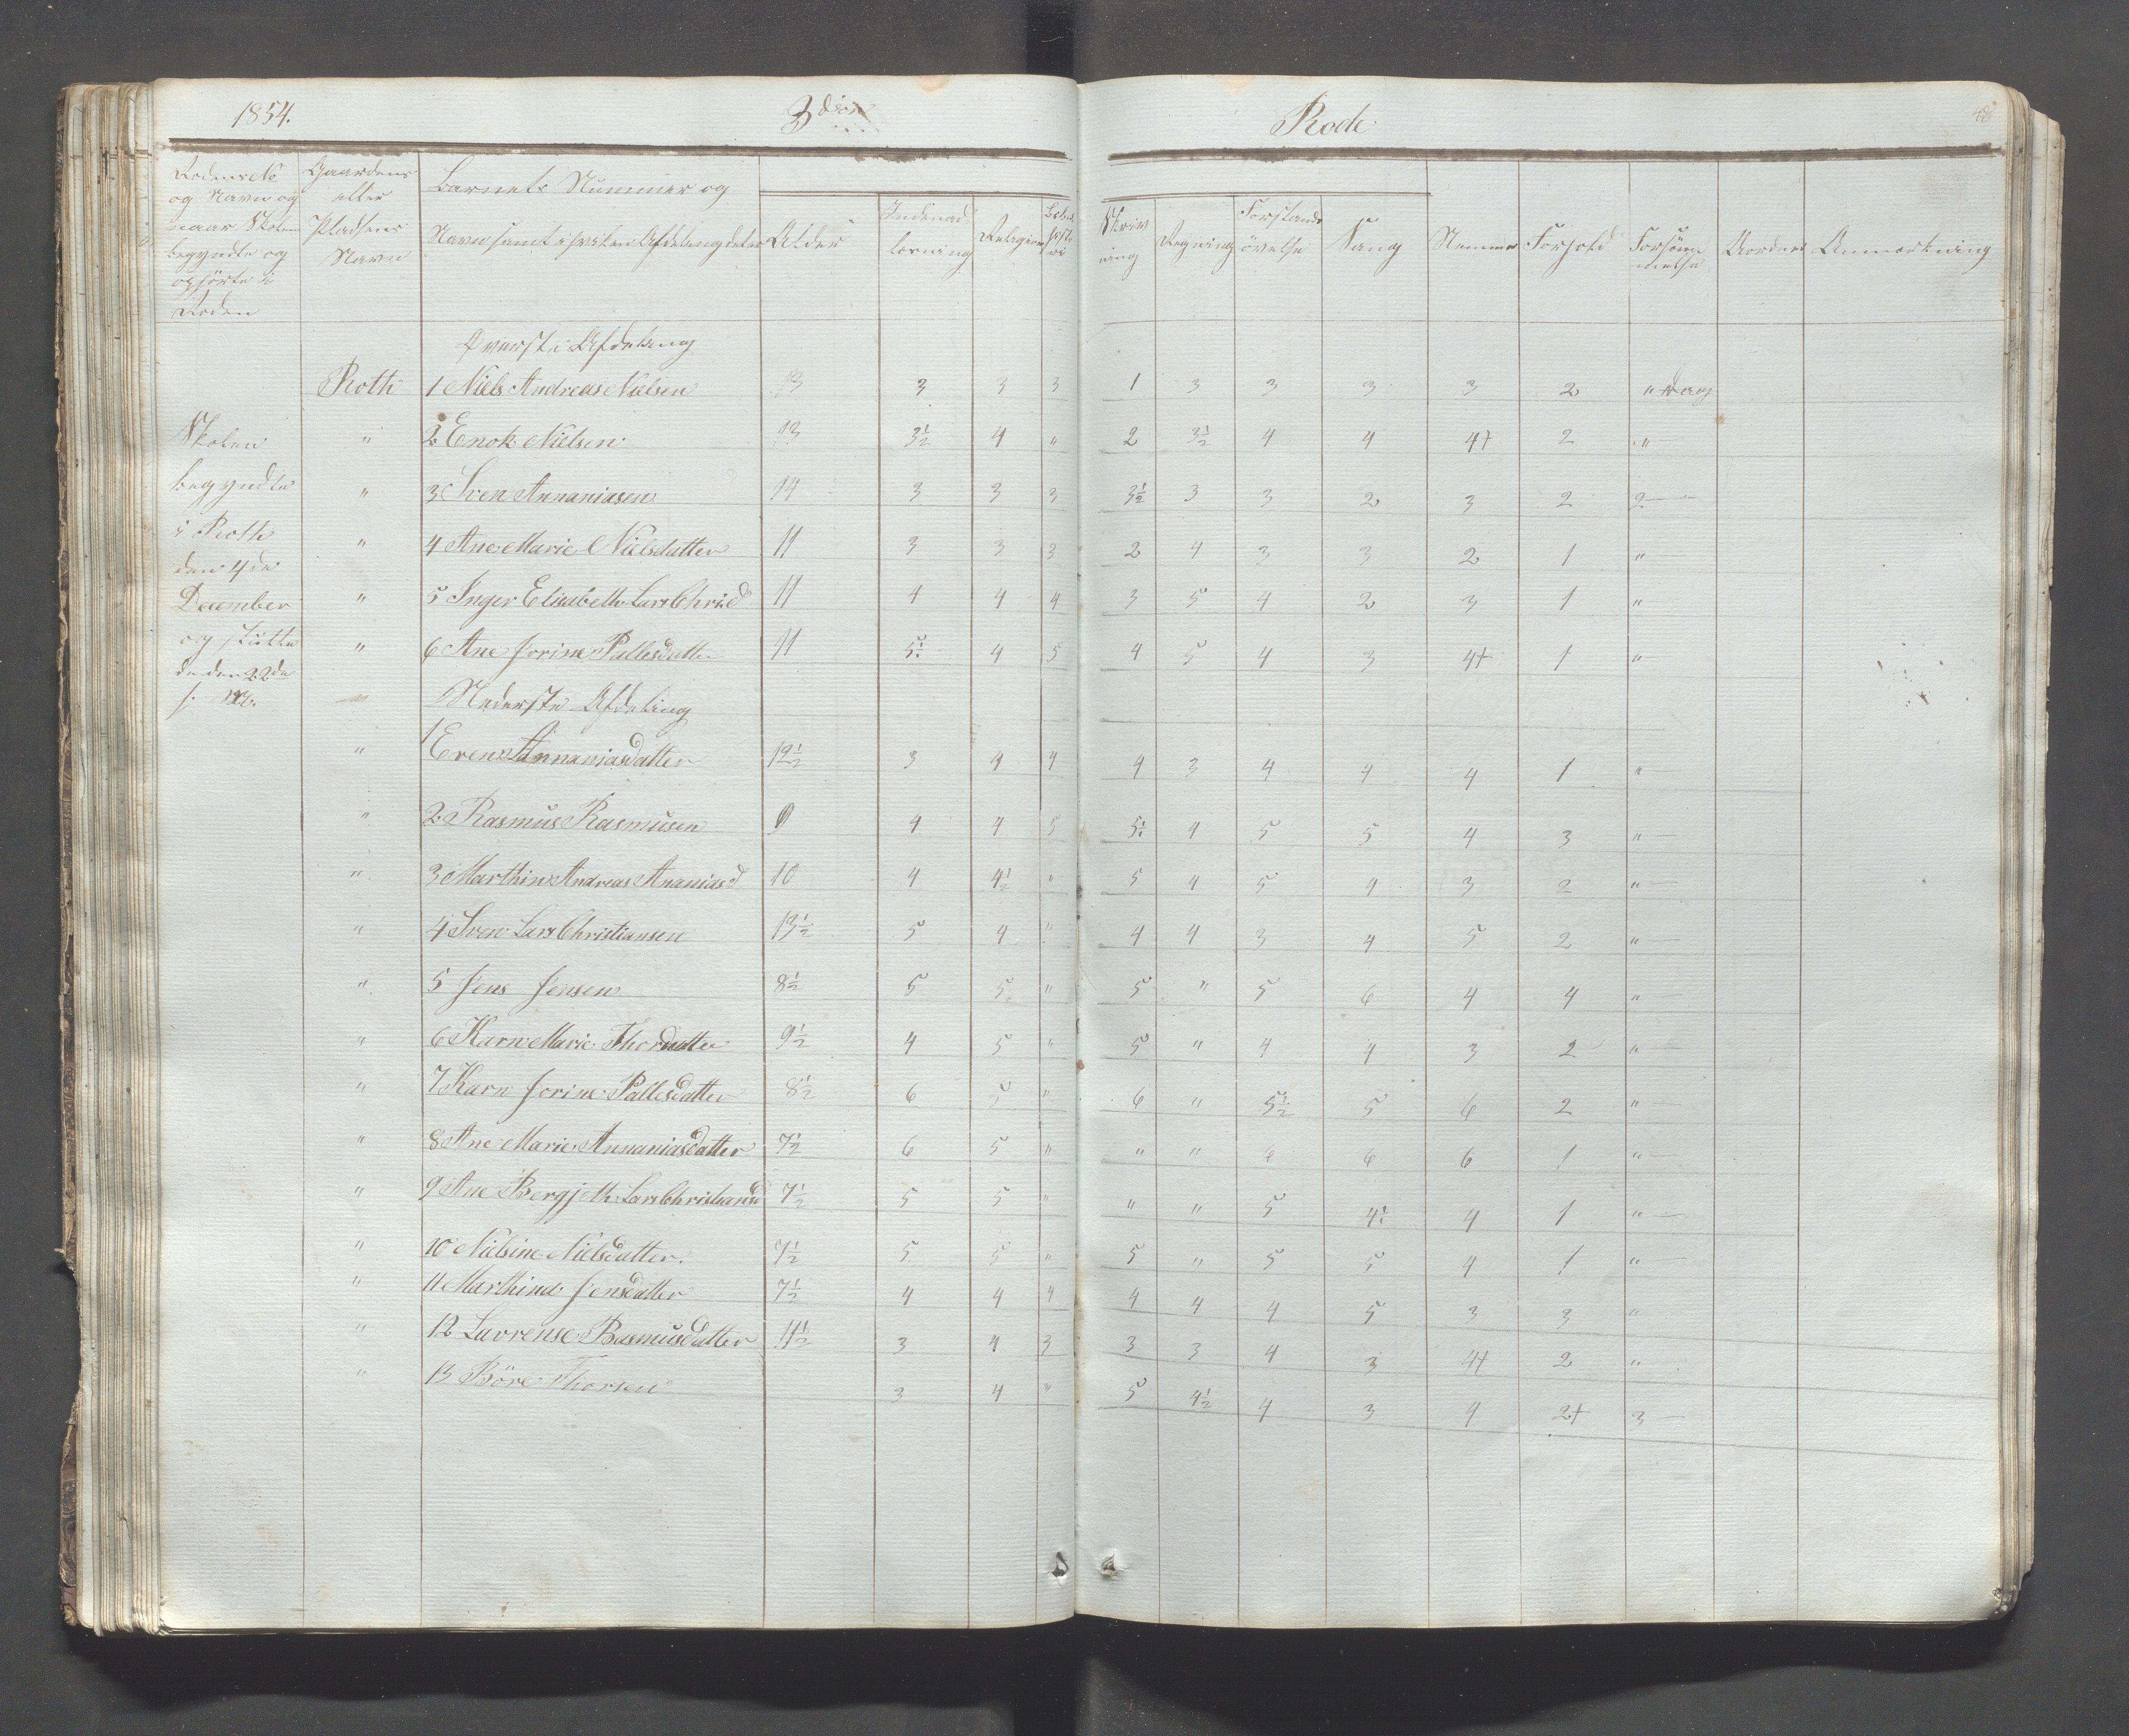 1854. 3die Rode 48
Rodens No og Navn og naar Skolen begyndte og ophørte i Roden
Gaardens eller Pladsens Navn
Barnets Nummer og Navn samt i hvilken Afdeling det er
Alder
Religion
Skrivning
Regning
Forstandsøvelse
Sang
Nemme
Forhold
Forsømmelse
Anmerkning
Øverste Afdeling
Skolen begyndte i Roth den 4de December og sluttede den 22de s. M.
Roth 1 Niels Andreas Nielsen 13 3 3 3 1 3 3 3 3 2 " Dag
" 2 Enok Nielsen 13 3½ 4 " 2 3½ 4 4 4+ 2 "
" 3 Sven Annaniasen 14 3 3 3 3½ 3 3 2 3 2 2
" 4 Ane Marie Nielsdatter 11 3 3 3 2 4 3 3 2 1 "
" 5 Inger Elisabeth Lars Chr.d 11 4 4 4 3 5 4 2 3 1 "
" 6 Ane Jorine Pallesdatter 11 5: 4 5 4 5 4 3 4+ 1 "
Nederste Afdeling
" 1 Annaniasdatter 12½ 3 4 4 4 3 4 4 4 1 "
" 2 Rasmus Rasmusen 9 4 4 5 5: 4 5 5 4 3 "
" 3 Marthin Andreas Ananias 10 4 4½ " 5 4 5 4 3 2 "
" 4 Sven Lars Christiansen 13½ 5 4 " 4 4 3 4 5 2 "
" 5 Jens Jensen 8½ 5 5 " 5 " 5 6 4 4 "
" 6 Karn Marie Thordatter 9½ 4 5 " 5 " 4 4 3 2 "
" 7 Karn Jorine Pallesdatter 8½ 6 5 " 6 " 5½ 5 6 2 "
" 8 Ane Marie Annaniasdatter 7½ 6 5 " " " 6 6 6 1 "
" 9 Ane Bergjeth Lars Christiansd 7½ 5 5 " " " 5 4: 4 1 "
" 10 Nielsine Nielsdatter. 7½ 5 5 " 5 " 5 5 4 1 "
" 11 Marthina Jensdatter 7½ 4 4 4 4 4 4 5 3 3 "
" 12 Lavrense Rasmusdatter 11½ 3 4 3 3 3 4 3 4+ 2 "
" 13 Böre Thorsen 3 4 " 5 4½ 4 3 4 2+ 3